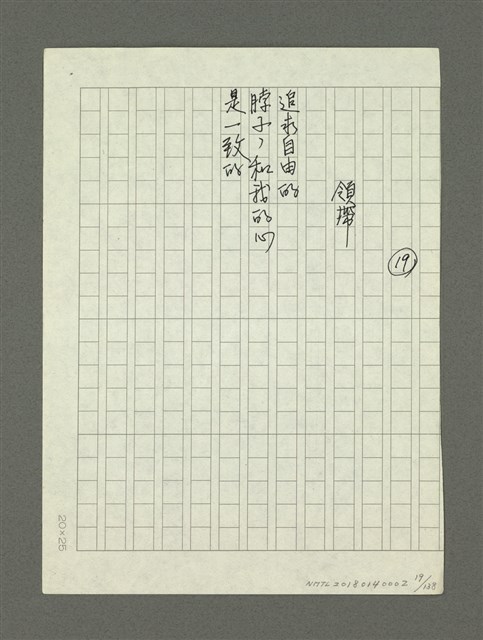 19
領帶
追求自由的
脖子，和我的心
是一致的
20×25
NMTL20180140002 19/188